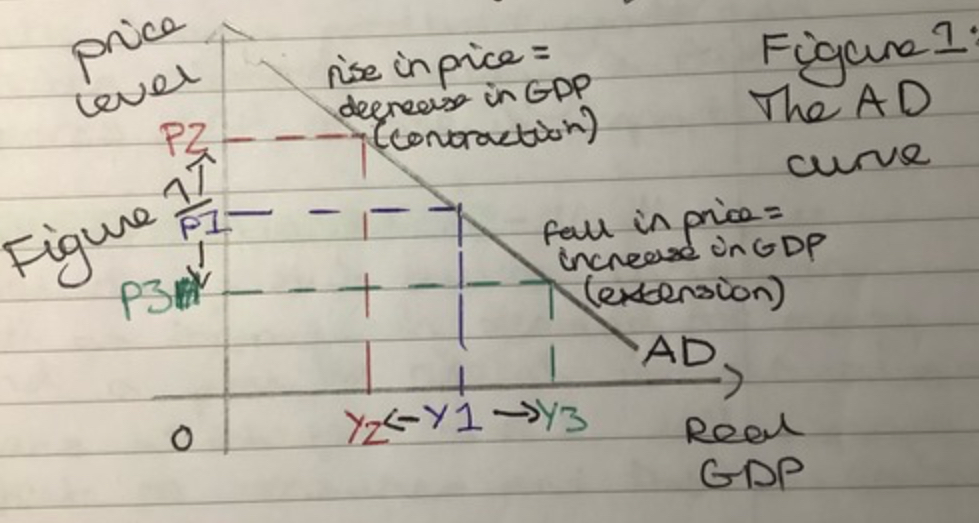 price
level
rise in price =
decrease in GDP
(contraction)
Figure 1:
The AD
curve
P2
Figure 1
P1
P3
fall in price =
increase in GDP
(extension)
AD
0
Y2 ← Y1 → Y3
Real
GDP